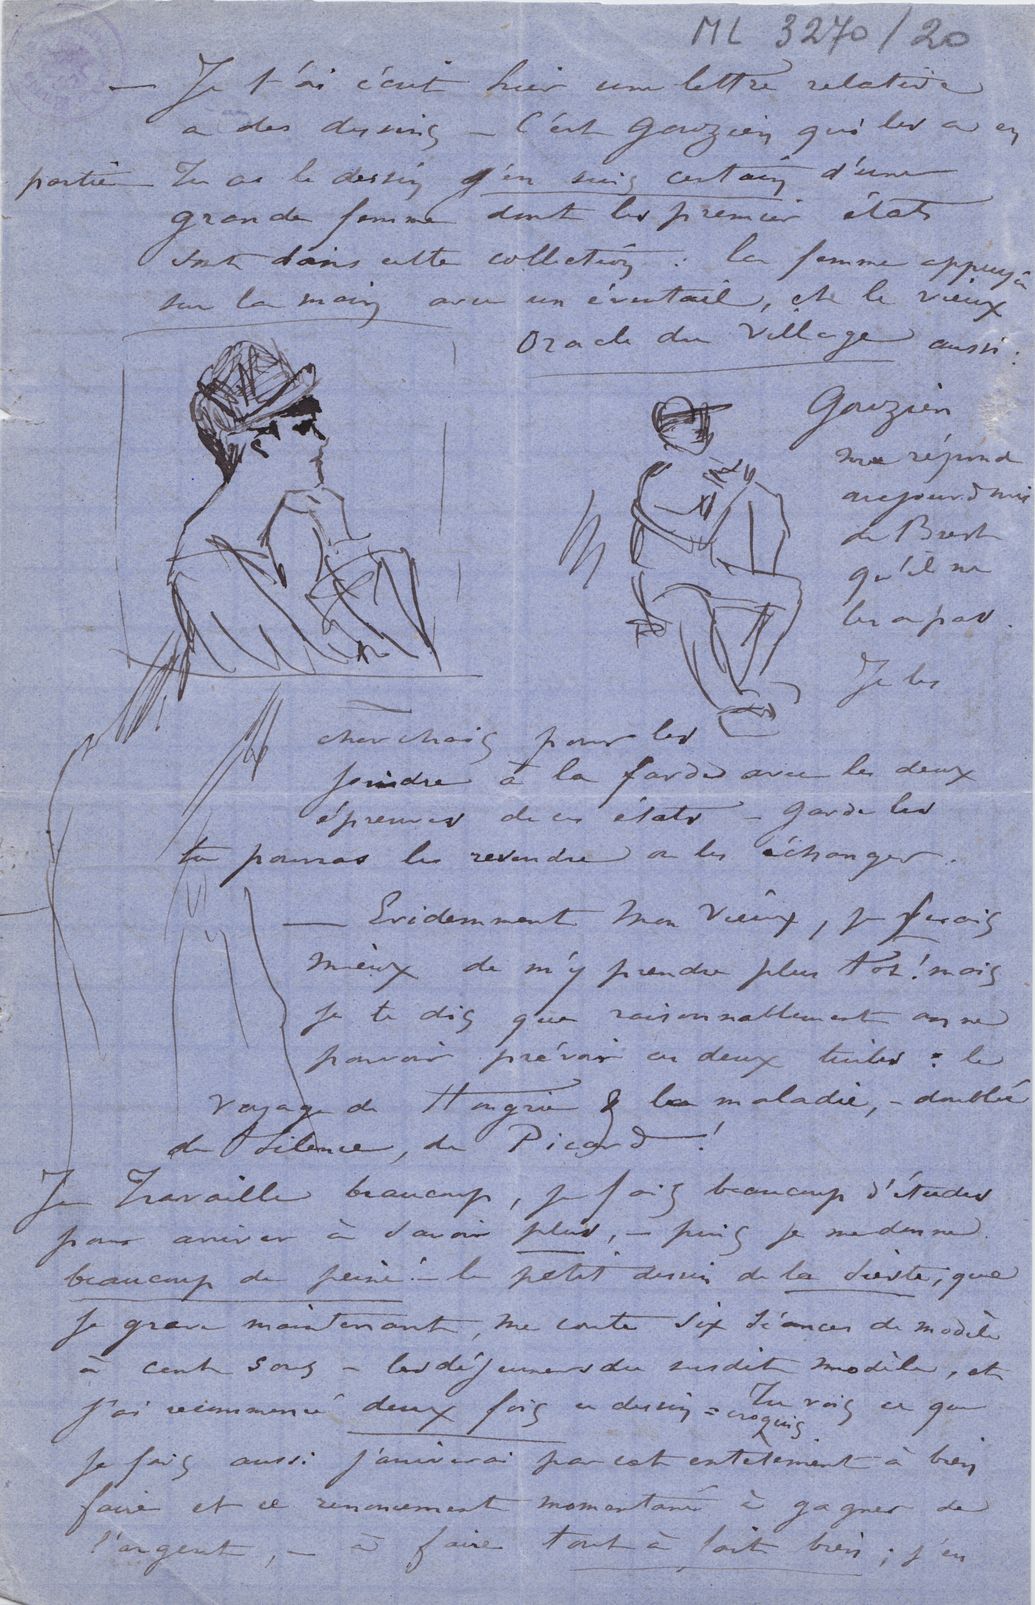 ML 3270/20
— Je t'ai écrit hier une lettre relative
a des dessins — C'est Gouzien qui les a en
partie — Tu as le dessin j'en suis certain d'une
grande femme dont les premier états
sont dans cette collection : la femme appuyée
sur la main avec un éventail, et le vieux
Oracle du Village aussi.
Gouzien
me répond
aujourd'hui
de Brest
qu'il ne
les a pas.
Je les
cherchais pour les
joindre à la farde avec les deux
épreuves de ces états — garde les
tu pourras les revendre ou les échanger.
— Evidemment mon vieux, je ferais
mieux de m'y prendre plus tot ! mais
je te dis que raisonnablement on ne
pouvait prévoir ces deux tuiles : le
voyage de Hongrie & la maladie, — doublée
du Silence, de Picard !
Je Travaille beaucoup, je fais beaucoup d'études
pour arriver à savoir plus, — puis je me donne
beaucoup de peine ! — le petit dessin de la Sieste, que
je grave maintenant, me coute six séances de modèle
à cent sous — les déjeuners du susdit modèle, et
j'ai recommencé deux fois ce dessin = Tu vois ce que
croquis
je fais aussi j'arriverai par cet entetement à bien
faire et ce renoncement momentané à gagner de
l'argent, — à faire tout à fait bien ; j'en